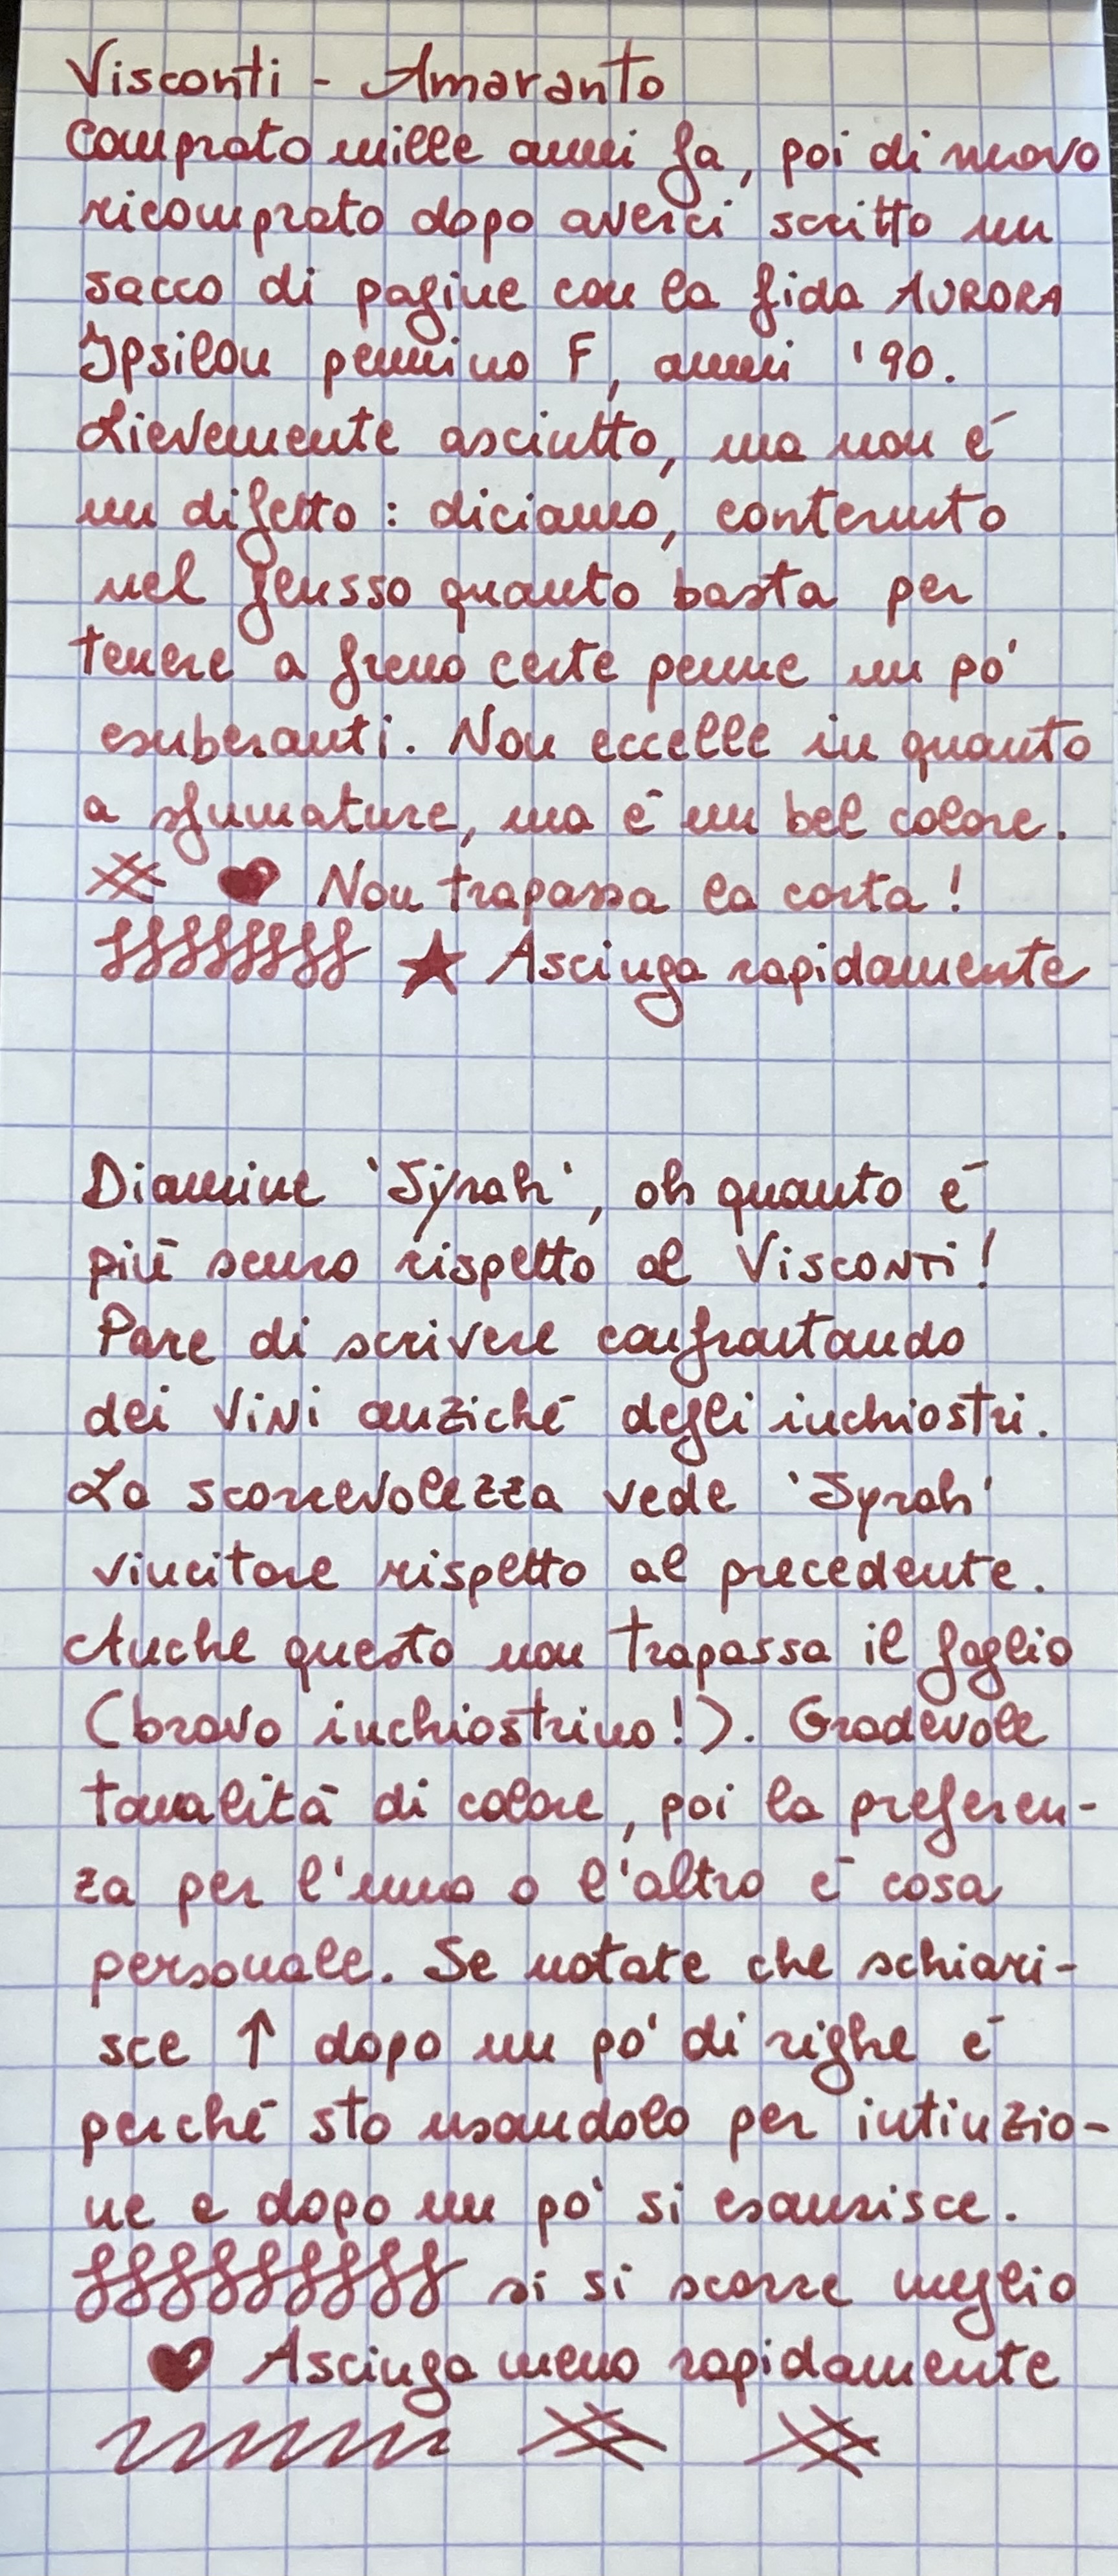 Visconti - Amaranto
Comprato mille anni fa, poi di nuovo
ricomprato dopo averci scritto un
sacco di pagine con la fida AURORA
Ipsilon pennino F, anni '90.
Lievemente asciutto, ma non è
un difetto : diciamo, contenuto
nel flusso quanto basta per
tenere a freno certe penne un po'
esuberanti. Non eccelle in quanto
a sfumature, ma è un bel colore.
Non trapassa la carta !
Asciuga rapidamente
Diamine 'Syrah', oh quanto è
più scuro rispetto al Visconti!
Pare di scrivere confrontando
dei vini anziché degli inchiostri.
La scorrevolezza vede 'Syrah'
vincitore rispetto al precedente.
Anche questo non trapassa il foglio
(bravo inchiostrino!). Gradevole
tonalità di colore, poi la preferen-
za per l'uno o l'altro è cosa
personale. Se notate che schiari-
sce ↑ dopo un po' di righe è
perché sto usandolo per intinzio-
ne e dopo un po' si esaurisce.
si si scorre meglio
Asciuga meno rapidamente